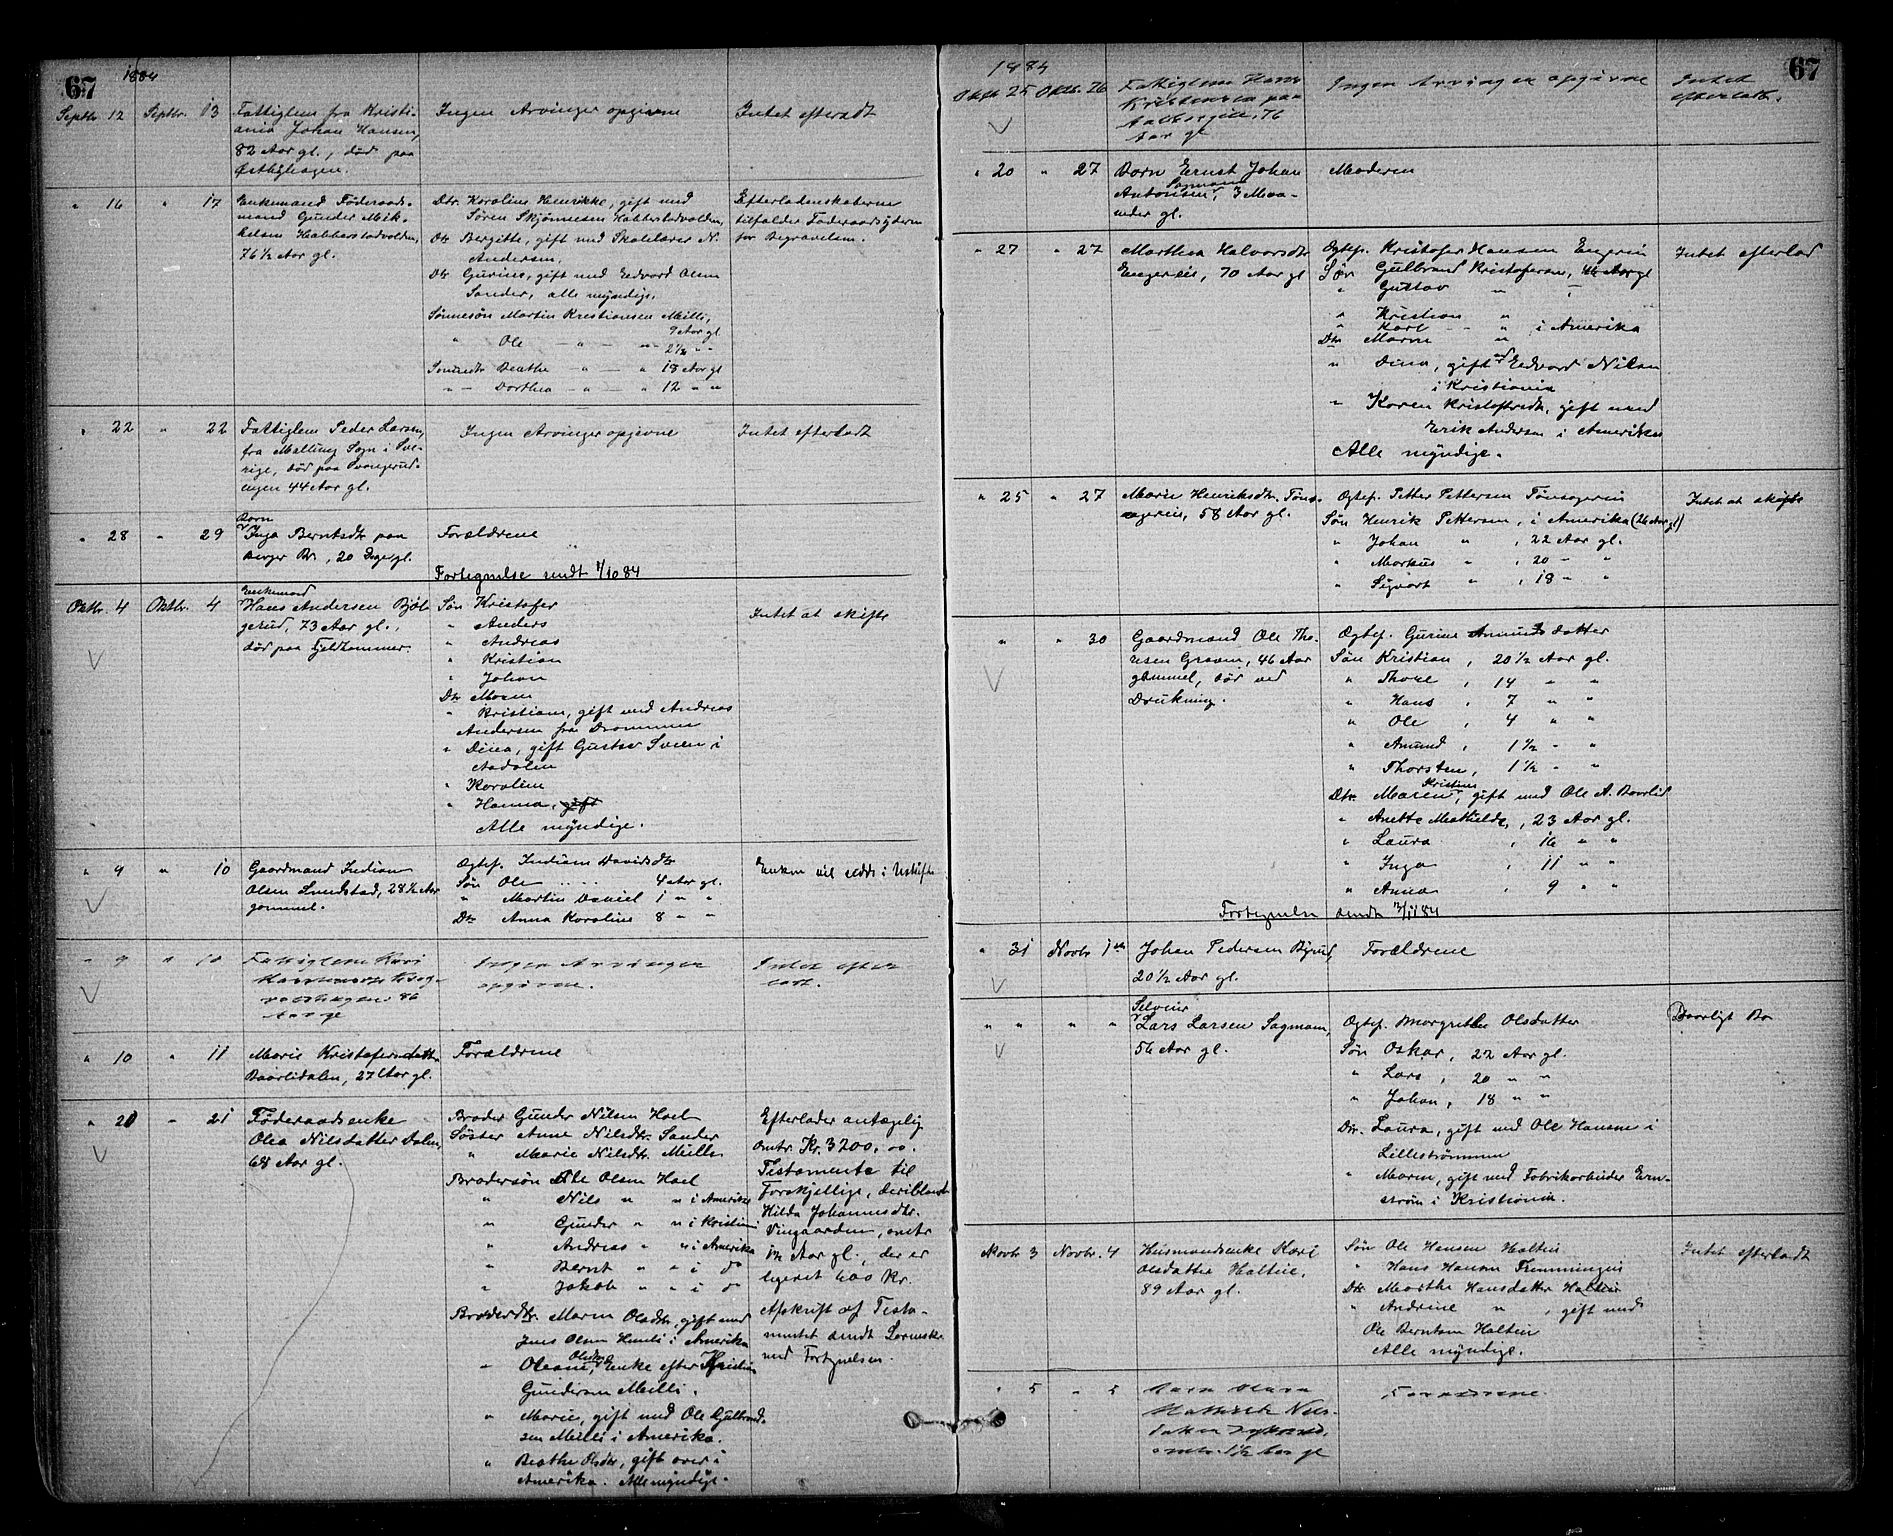 67
1884
Septbr. 12 Septbr. 13 Fattiglem fra Kristi-
ania Johan Hansen,
82 Aar gl., død paa
Østbyhagen.
Ingen Arvinger opgivne
Intet efterladt
" 16 " 17 Enkemand Føderaads-
mand Gunder Mik-
kelsen Habberstadvolden,
76 1/2 Aar gl.
Dtr. Karoline Henrikke, gift med
Søren Skjønnesen Habberstadvolden,
Dtr Bergitte, gift med Skolelærer N.
Andersen.
Dtr Gurine, gift med Eedvard Olsen
Sander, alle myndige.
Sønnesøn Martin Kristiansen Meilli,
9 Aar gl
" Ole — " — " 2 1/2 " "
Sønnedtr Beathe — " — " 18 Aar gl
" — Dorthea — " — " 12 " "
Efterladenskaberne
tilfalder Føderaadsyderen
for Begravelsen.
" 22 " 22 Fattiglem Peder Larsen,
fra Malling Sogn i Sve-
rige, død paa
44 Aar gl.
Ingen Arvinger opgivne
Intet efterladt
" 28 " 29 Barn
Inga Berntsdtr paa
Berger Br., 20 Dage gl.
Forældrene
Fortegnelse sendt 1/10 84
Oktbr. 4 Oktbr. 4 Enkemand
Hans Andersen Bjøl-
gerud, 73 Aar gl.,
død paa Fjeldhammer.
Søn Kristofer
" Anders
" Andreas
" Kristian
" Johan
Dtr Maren
" Kristiane, gift med Andreas
Andersen fra Drammen
" Dina, gift Gustav Sveen i
Aadalen
" Karoline
" Hanna, gift
Alle myndige.
Intet at skifte
" 9 " 10 Gaardmand Indian
Olsen Lundstad, 28 1/2 Aar
gammel.
Ogtef. Indiane Davidsdtr
Søn Ole ..... 4 Aar gl.
" Martin Daniel 1 " "
Dtr Anna Karoline 8 " "
Enken vil sidde i Uskifte
" 9 " 10 Fattiglem Kari
86
Aar gl
Ingen Arvinger
opgivne.
Intet efter-
ladt.
" 10 " 11 Marie Kristofersdatter
Baarlidalen, 27 Aar gl.
Forældrene
" 20 " 21 Føderaadsenke
Olea Nilsdatter Dalen,
68 Aar gl.
Broder Gunder Nilsen Hoel
Søster Anne Nilsdtr. Sander
" Marie Nilsdtr. Meilli
Brodersøn Ole Olsen Hoel
" Nils " " i Amerika
" Gunder " " i Kristiania
" Andreas " " i Amerika
" Bernt " " i do
" Jakob " " i do
Broderdtr. Maren Olsdtr, gift med
Jens Olsen i Amerika
" Oleane Olsdtr, Enke efter Kristian
Gundersen Meilli.
" Marie, gift med Ole Gulbrand-
sen Meilli i Amerika.
" Beathe Olsdtr, gift over i
Amerika. Alle myndige.
Efterlader antagelig
omtr. Kr. 3200.00.
Testamente til
Forskjellige, deriblandt
Hilda Johannesdtr.
Vingaarden, omtr
1 1/2 Aar gl., der er
ligeret 400 Kr.
Afskrift af Testa-
mentet sendt Lorensk.
med Fortegnelsen.
67
1884
Oktb. 25 Oktb. 26 Fattiglem Hans
Kristensen paa
76
Aar gl
Ingen Arvinger opgivne
Intet
efterladt.
" 20 " 27 Barn Ernst Johan
Antonsen Sagmand, 3 Maa-
neder gl.
Moderen
" 27 " 27 Marthea Halvorsdtr
Engereie, 70 Aar gl
Ogtef. Kristofer Hansen Engerein
Søn Gulbrand Kristofersen, 46 Aar gl
" Gustav " "
" Kristian "
" Karl — " i Amerika
Dtr Maren "
" Dina, gift med Eedvard Nilsen
i Kristiania
" Karen Kristofersdtr, gift med
Erik Andersen i Amerika
Alle myndige.
Intet efterlad
" 25 " 27 Marie Henriksdtr. Tøns-
agereie, 58 Aar gl.
Ogtef. Petter Pettersen Tønsagerein
Søn Henrik Pettersen, i Amerika (26 Aar gl)
" Johan " , 22 Aar gl.
" Markus " , 20 " "
" Sigvart " , 18 " "
Intet at skifte
" " 30 Gaardmand Ole Tho-
resen Graven, 46 Aar
gammel, død ved
Drukning.
Ogtef. Gurine Amundsdatter
Søn Kristian, 20 1/2 Aar gl.
" Thore, 14 " "
" Hans, 7 " "
" Ole, 4 " "
" Amund, 1 1/2 " "
" Thorsten, 1 1/2 " "
Dtr. Maren Kristine, gift med Ole A. Baarlid
" Anette Mathilde, 23 Aar gl.
" Laura, 16 " "
" Inga, 11 " "
" Anna, 9 " "
Fortegnelse sendt 12/11 84
" 31 Novbr 1ste Johan Pedersen Bjerud,
20 1/2 Aar gl.
Forældrene
" " " " Selveier
Lars Larsen Sagmann,
56 Aar gl.
Ogtef. Margrethe Olsdatter
Søn Oskar, 22 Aar gl.
" Lars, 20 " "
" Johan, 18 " "
Dtr. Laura, gift med Ole Hansen i
Lillestrømmen
" Maren, gift med Fabrikarbeider Ern-
strøm i Kristiania.
Daarligt Bo
Novbr 3 Novbr. 4 Husmandsenke Kari
Olsdatter Halteie.
89 Aar gl.
Søn Ole Hansen Haltein
" Hans Hansen Tremmingen
Dtr Marthe Hansdatter Haltein
" Andrine " , gift med
Ole Berntsen Haltein
Alle myndige.
Intet efterladt
" 5 " 5 Barn
Mathilde Nils-
datter
omtr. 1 1/2 Aar gl
Forældrene.